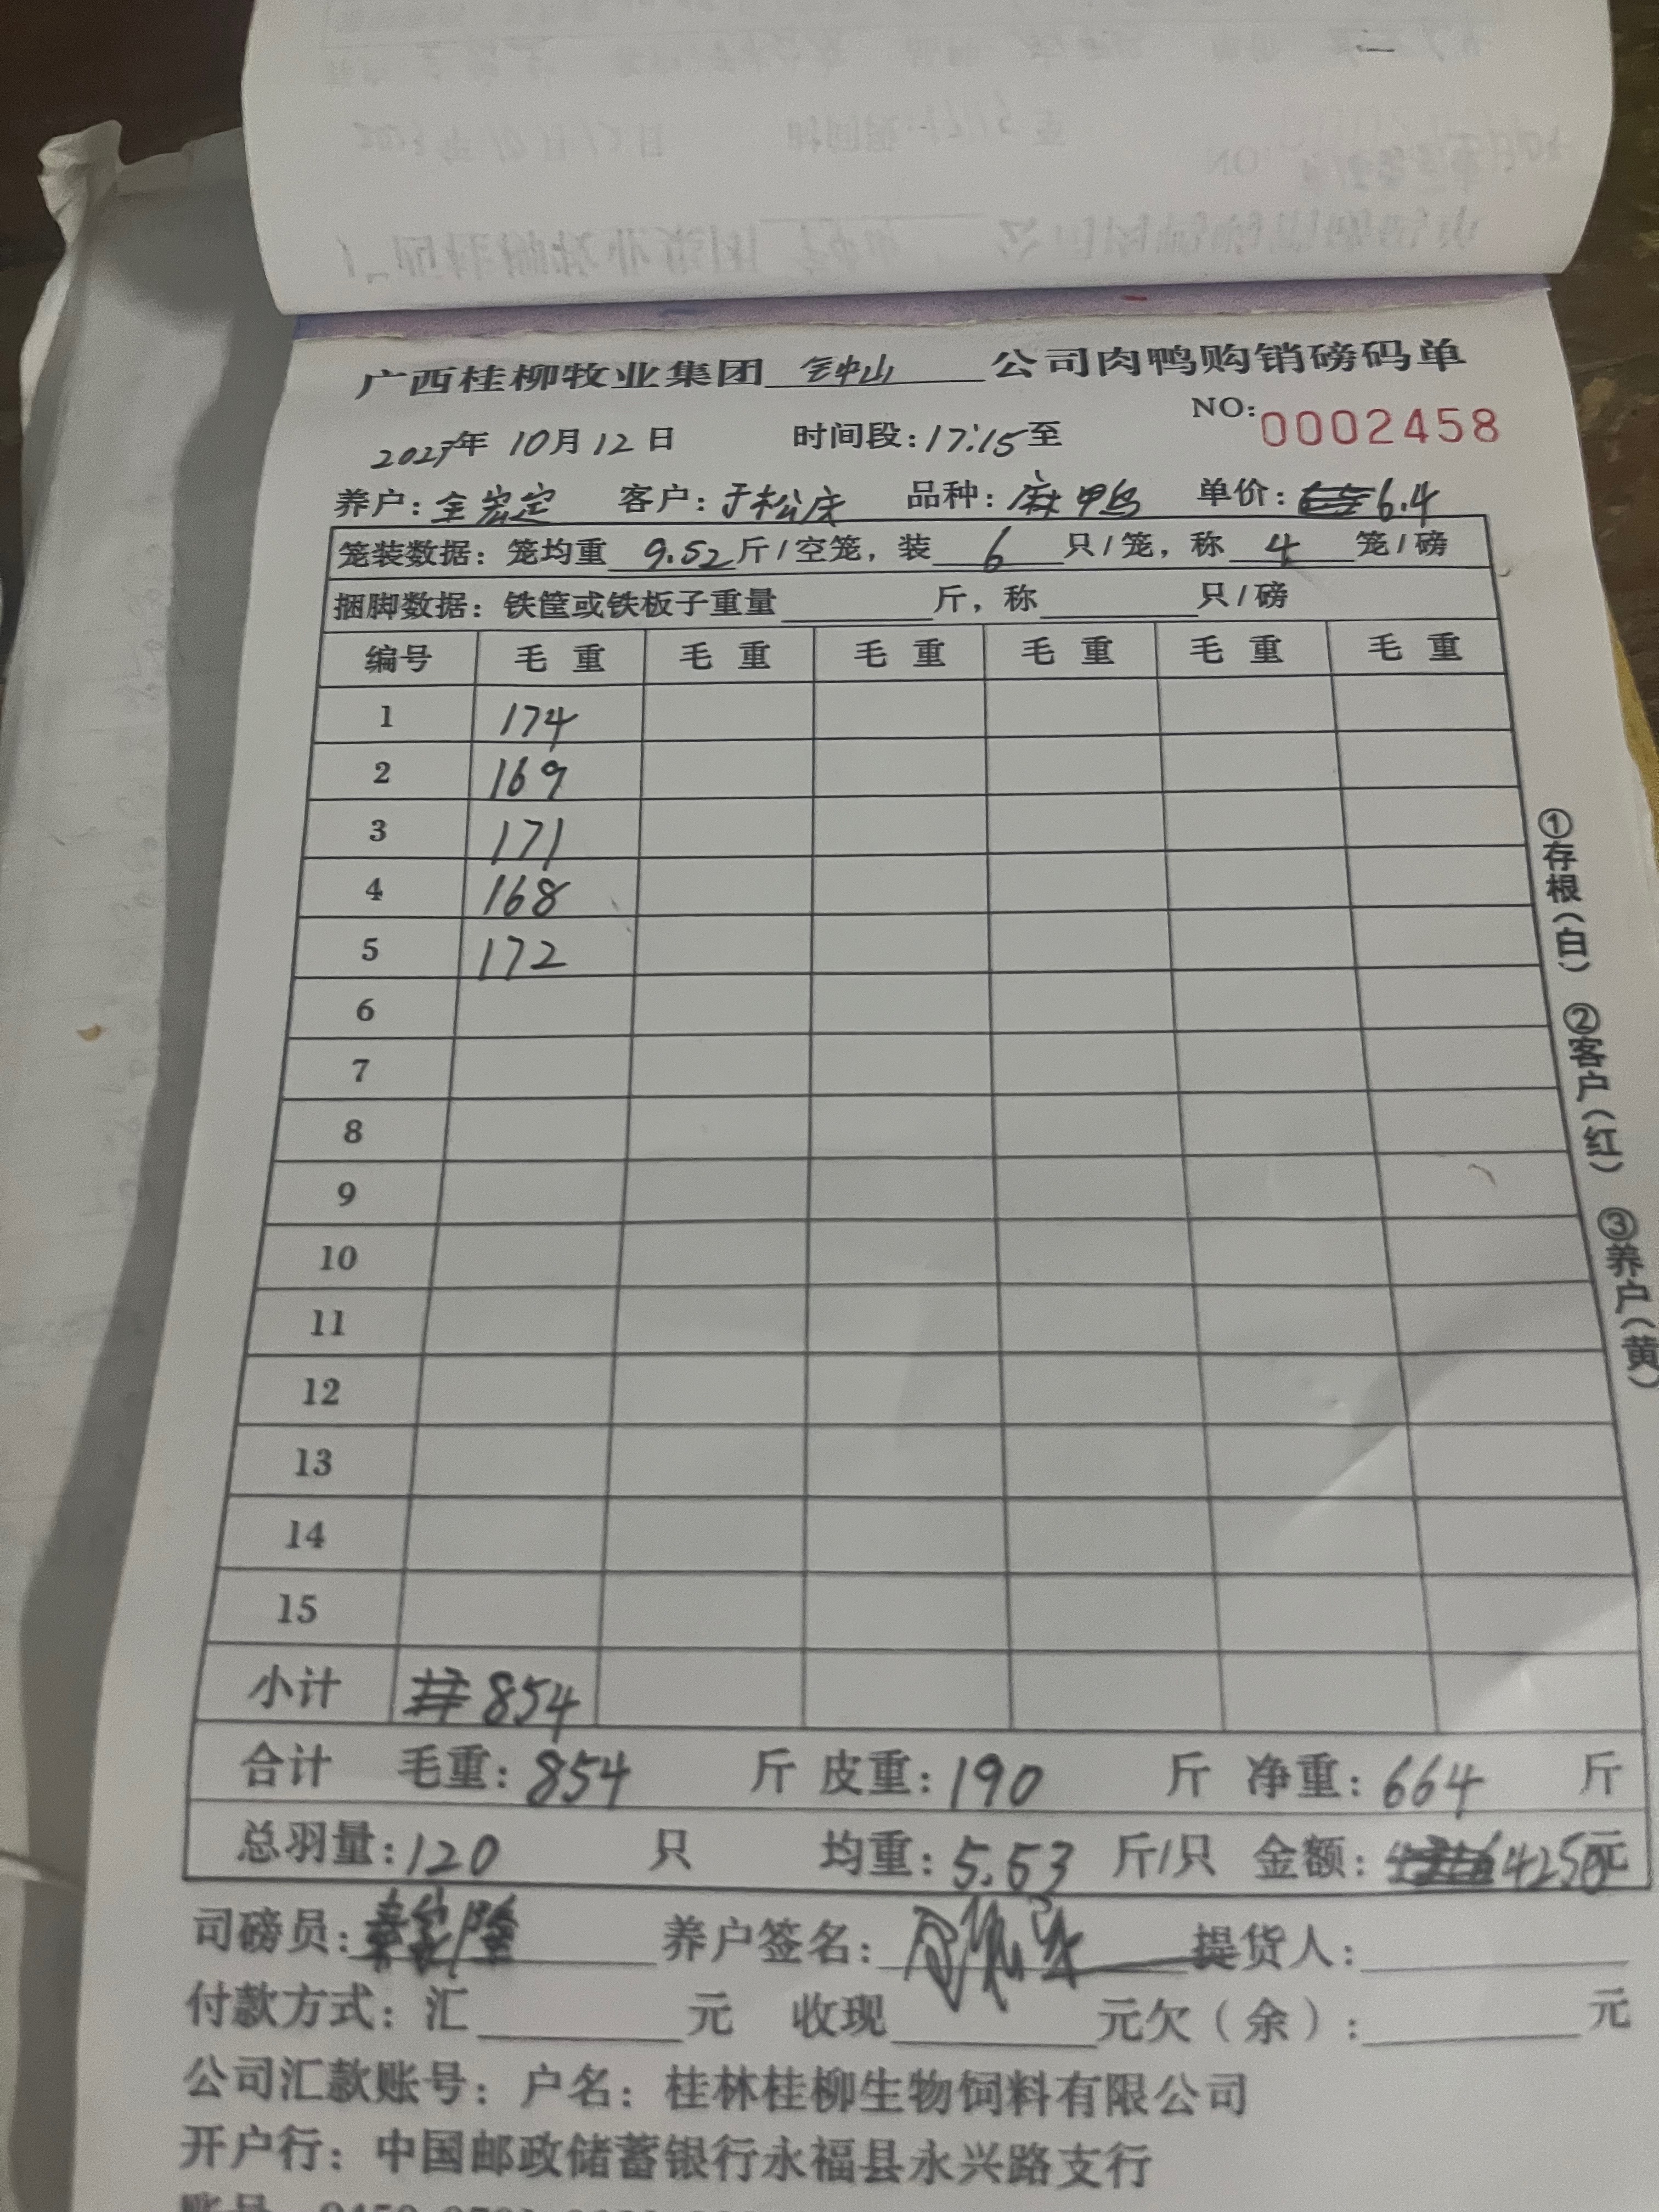 广西桂柳牧业集团 钟山 公司肉鸭购销磅码单
NO: 0002458
年 10月 12日 时间段: 17:15 至
养户: 全宏定 客户: 于松庆 品种: 麻鸭 单价: 6.4
笼装数据: 笼均重 9.52 斤/空笼, 装 6 只/笼, 称 4 笼/磅
捆脚数据: 铁筐或铁板子重量 斤, 称 只/磅
编号 毛重 毛重 毛重 毛重 毛重 毛重
1 174
2 169
3 171
4 168
5 172
6
7
8
9
10
11
12
13
14
15
小计 854
合计 毛重: 854 斤 皮重: 190 斤 净重: 664 斤
总羽量: 120 只 均重: 5.53 斤/只 金额: 4250元
司磅员: 养户签名: 提货人:
付款方式: 汇 元 收现 元 欠(余): 元
公司汇款账号: 户名: 桂林桂柳生物饲料有限公司
开户行: 中国邮政储蓄银行永福县永兴路支行
①存根(白) ②客户(红) ③养户(黄)